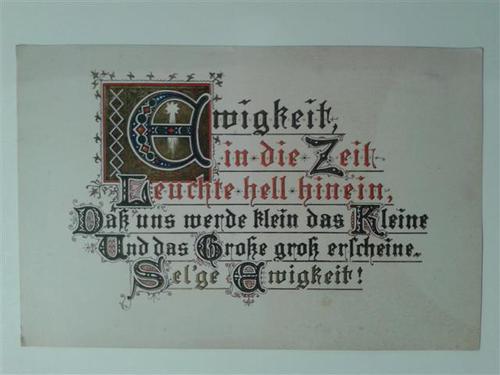 Ewigkeit,
in die Zeit
Leuchte hell hinein,
Daß uns werde klein das Kleine
Und das Große groß erscheine.
Sel'ge Ewigkeit!